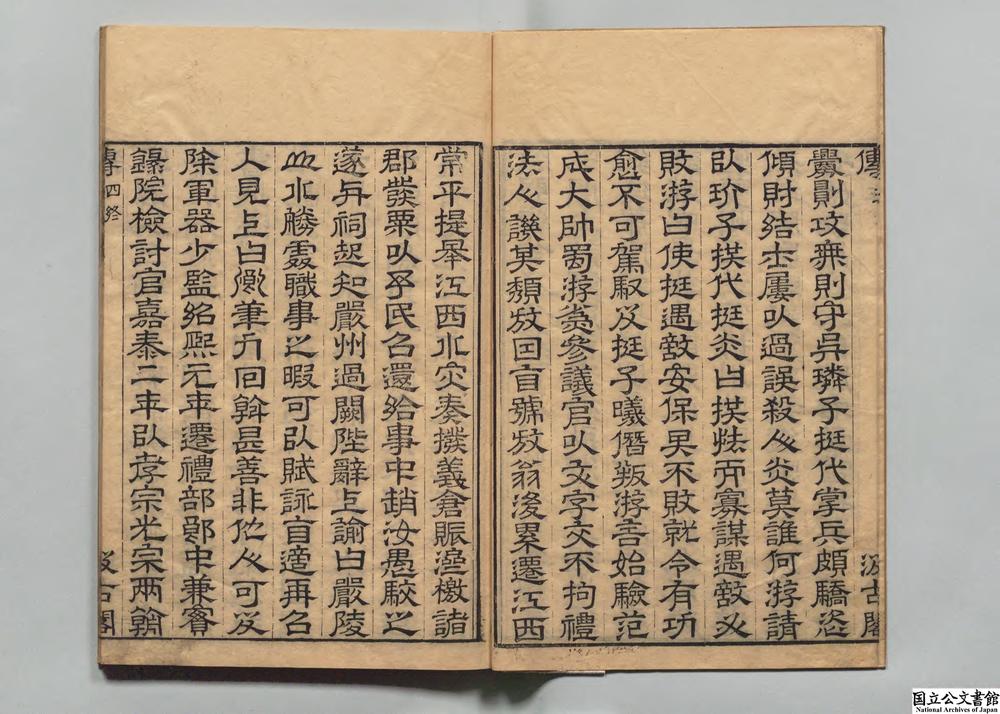 傳
汲古閣
釁則攻無則守吳璘子挺代掌兵頗驕恣
傾財結士屢以過誤殺人炎莫誰何游請
以玠子拱代挺炎曰拱怯而寡謀遇敵必
敗游曰使挺遇敵安保其不敗就令有功
愈不可駕馭及挺子曦僭叛游言始驗范
成大帥蜀游為參議官以文字交不拘禮
法人譏其頹放因自號放翁後累遷江西
常平提舉江西水災奏撥義倉賑濟檄諸
郡發粟以予民召還給事中趙汝愚駁之
遂與祠起知嚴州過闕陛辭上諭曰嚴陵
山水勝處職事之暇可以賦詠自適再召
入見上曰卿筆力回斡甚善非他人可及
除軍器少監紹熙元年遷禮部郎中兼實
錄院檢討官嘉泰二年以孝宗光宗兩朝
傳四終
汲古閣
国立公文書館
National Archives of Japan